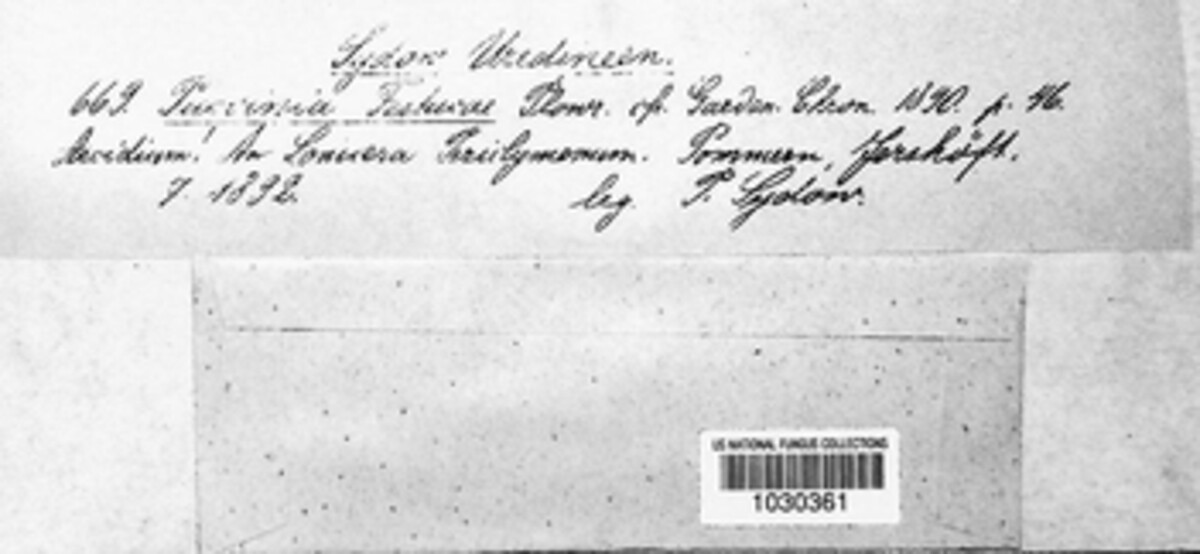 Sydow Uredineen.
669. Puccinia Festucae Plowr. cf. Garden. Chron. 1890. p. 46.
Aecidium! An Lonicera Periclymenum. Pommern,
7. 1892. leg. P. Sydow.
US NATIONAL FUNGUS COLLECTIONS
1030361